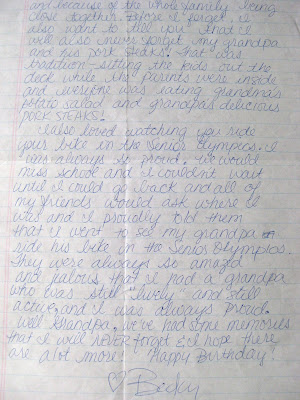 and because of the whole family being
close together. Before I forget, I
also want to tell you that I
will also never forget my grandpa
and his pork steaks! That was
tradition - sitting the kids out the
deck while the parents were inside
and everyone was eating grandma's
potato salad and grandpa's delicious
PORK STEAKS!
I also loved watching you ride
your bike in the Senior Olympics. I
was always so proud. We would
miss school and I couldn't wait
until I could go back and all of
my friends would ask where I
was and I proudly told them
that I went to see my grandpa
ride his bike in the Senior Olympics.
They were always so amazed
and jealous that I had a grandpa
who was still "lively" and still
active and I was always proud.
Well Grandpa, we've had some memories
that I will NEVER forget & I hope there
are a lot more! Happy Birthday!
♡ Becky